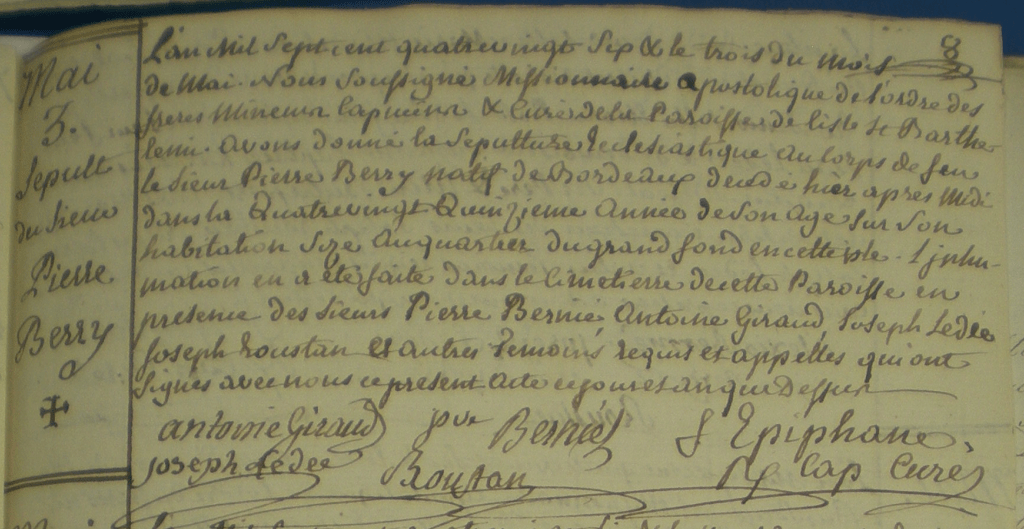 8
Mai
3.
Sepult
du Sieur
Pierre
Berry
L'an Mil Sept cent quatrevingt Sex & le trois du mois
de Mai. Nous Soussigné Missionnaire apostolique de l'ordre des
freres Mineurs Capucins & Curé de la Paroisse de l'isle St Barthe
lemi. avons donné la Sepulture Ecclesiastique au Corps de feu
le Sieur Pierre Berry natif de Bordeaux decedé hier apres Midi
dans la Quatrevingt Quinzieme Année de Son Age Sur Son
habitation Size Au quartier du grand fond en cette isle. L'inhu-
mation en a été faite dans le Cimetierre de cette Paroisse en
presence des Sieurs Pierre Bernié, Antoine Giraud, Joseph Ledée
Joseph Roustan Et autres Temoins requis et appelles qui ont
Signes avec nous ce present Acte ce jour et an que Dessus
antoine Giraud pre Bernié f Epiphane.
Joseph Ledée Roustan Cap Curé